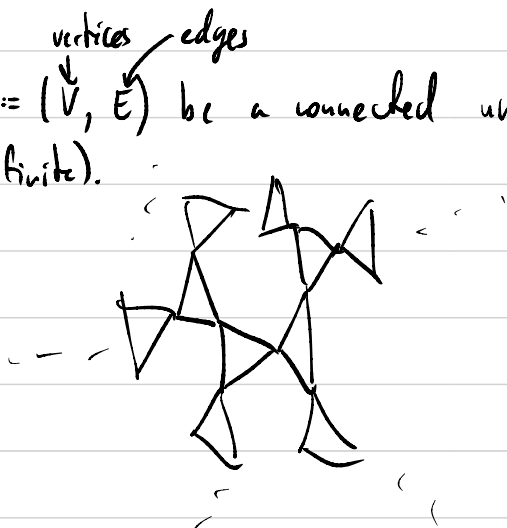 vertices edges
:= (V, E) be a connected un
finite).